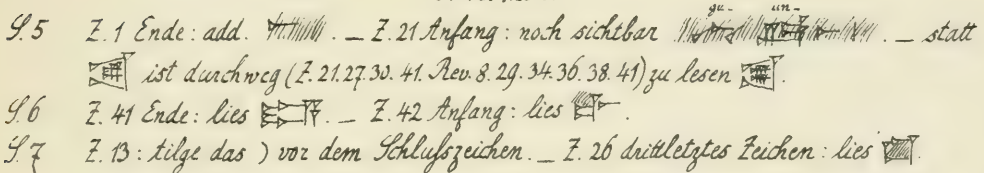 gu- un-
S. 5 Z. 1 Ende: add. . _ Z. 21 Anfang: noch sichtbar . _ statt
ist durchweg (Z. 21. 27. 30. 41. Rev. 8. 29. 34. 36. 38. 41) zu lesen .
S. 6 Z. 41 Ende: lies . _ Z. 42 Anfang: lies .
S. 7 Z. 13: tilge das ) vor dem Schlußzeichen. _ Z. 26 drittletztes Zeichen: lies .